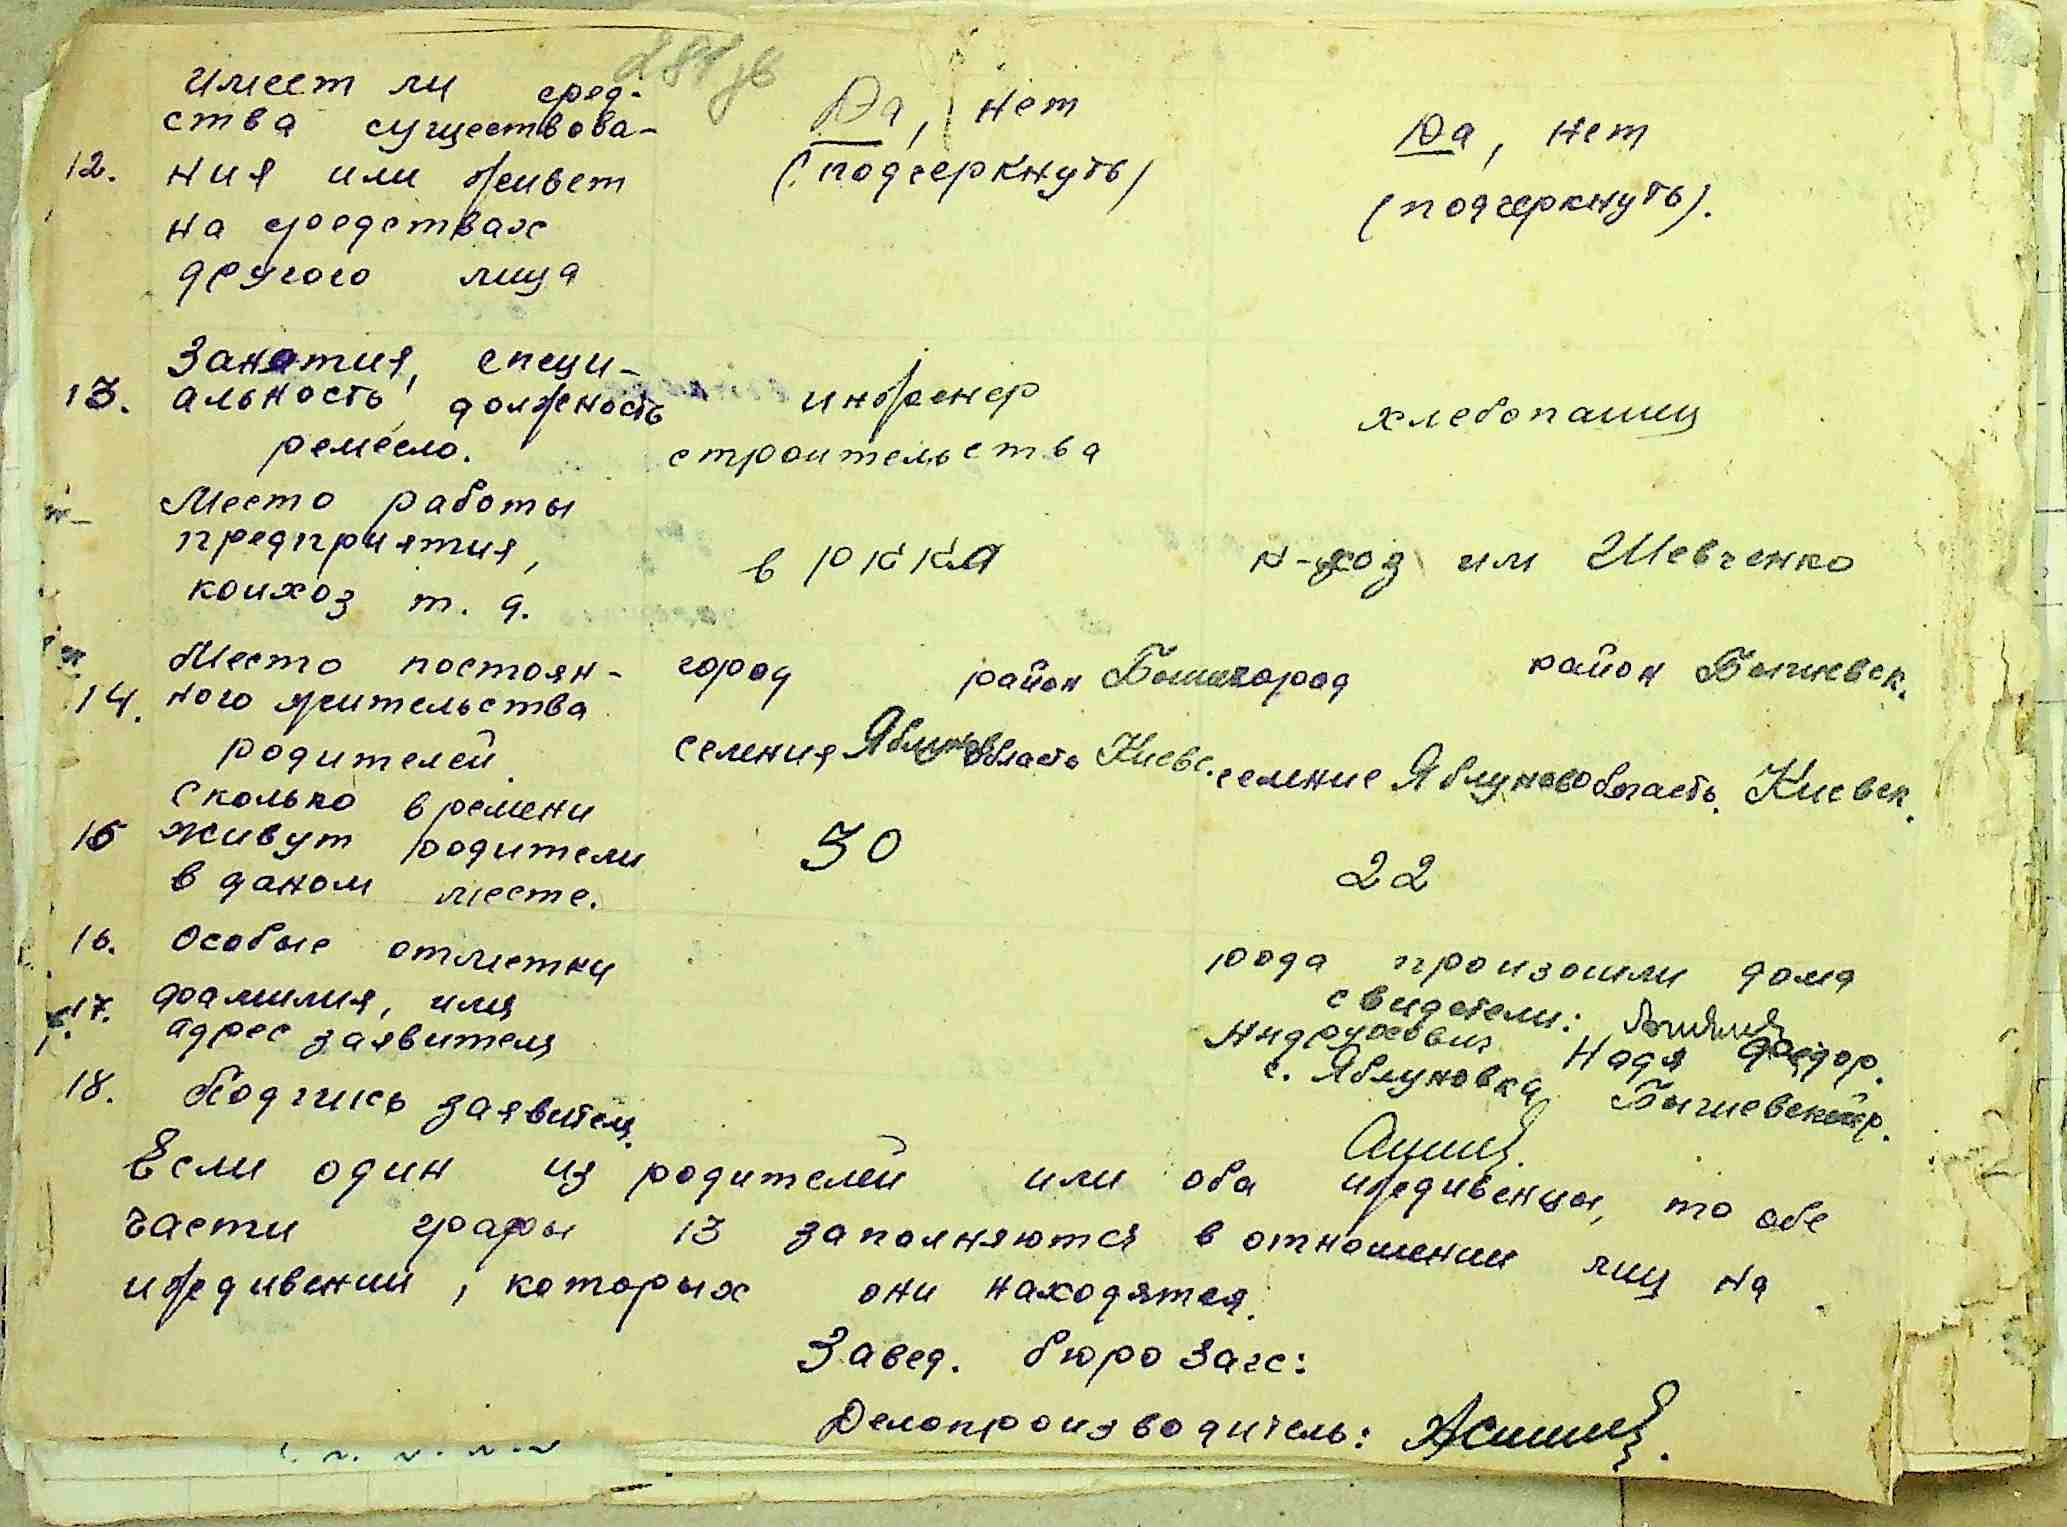 имеет ли сред-
ства существова-
12. ния или живет
на средствах
другого лица
Да, нет
(подчеркнуть)
Да, нет
(подчеркнуть).
Занятия, специ-
13. альность, должность
ремесло.
инженер
строительства
хлебопашец
Место работы
предприятия,
колхоз т. д.
в РККА
к-хоз им Шевченко
Место постоян-
14. ного жительства
родителей.
город район
селения область Киевс.
район Бышевск.
селение Яблуново область. Киевск.
Сколько времени
15 живут родители
в даном месте.
30
22
16. Особые отметки
рода произошли дома
свидетели:
17. фамилия, имя
адрес заявителя
Надя Федор.
с. Яблуновка, Бышевский р.
18. Подпись заявителя.
Если один из родителей или оба иждивенцы, то обе
части графы 13 заполняются в отношении лиц на
иждивении, которых они находятся.
Завед. бюро Загс:
Делопроизводитель: